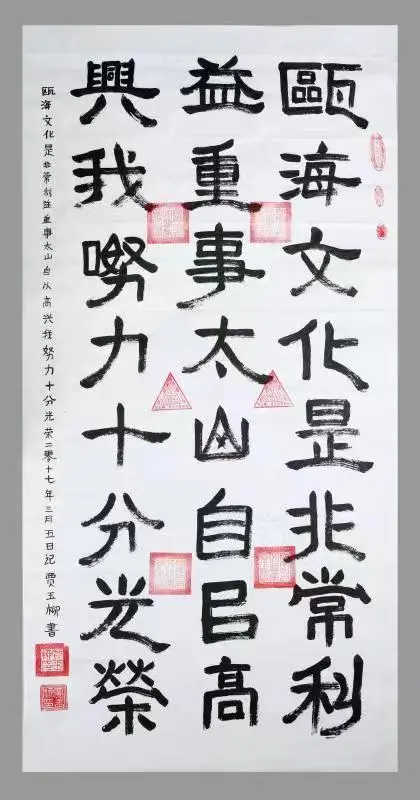 甌海文化是非常利
益重事太山自㠯高
興我嘮力十分光榮
瓯海文化是非常利益重事太山自以高兴我努力十分光荣二零十七年三月五日记 贾玉柳书